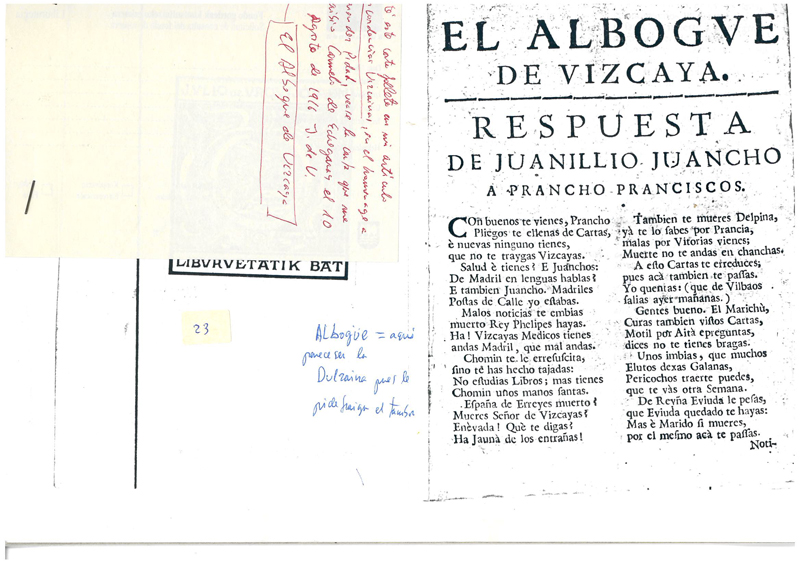 té esta carta folleto en mi artículo
Vizcaínas, en el homenaje a
Pidal, vease la carta que me
Carmelo de Echegaray el 10
Agosto de 1916 J. de U.
El Albogue de Vizcaya
LIBVRVETATIK BAT
23
Albogüe = aquí
parece ser la
Dulzaina pues le
el tambo
EL ALBOGVE
DE VIZCAYA.
RESPUESTA
DE JUANILLIO JUANCHO
A PRANCHO PRANCISCOS.
COn buenos te vienes, Prancho
Pliegos te ellenas de Cartas,
è nuevas ninguno tienes,
que no te traygas Vizcayas.
Salud è tienes? E Juanchos:
De Madril en lenguas hablas?
E tambien Juancho. Madriles
Postas de Calle yo estabas.
Malos noticias te embias
muerto Rey Phelipes hayas.
Ha! Vizcayas Medicos tienes
andas Madril, que mal andas.
Chomin te le erresuscita,
sino tè has hecho tajadas:
No estudias Libros; mas tienes
Chomin unos manos santas.
España de Erreyes muerto?
Mueres Señor de Vizcayas?
Enèvada! Què te digas?
Ha Jaunà de los entrañas!
Tambien te mueres Delpina,
yà te lo sabes por Prancia;
malas por Vitorias vienes;
Muerte no te andas en chanchas.
A esto Cartas te eireduces;
pues acà tambien te passas.
Yo quentas: (que de Vilbaos
salias ayer mañanas.)
Gentes bueno. El Marichù,
Curas tambien vistos Cartas,
Motil por Aità epreguntas,
dices no te tienes bragas.
Unos imbias, que muchos
Elutos dexas Galanas,
Pericochos traerte puedes,
que te vàs otra Semana.
De Reyña Eviuda le pesas,
que Eviuda quedado te hayas:
Mas è Marido si mueres,
por el mesmo acà te passas.
Noti-